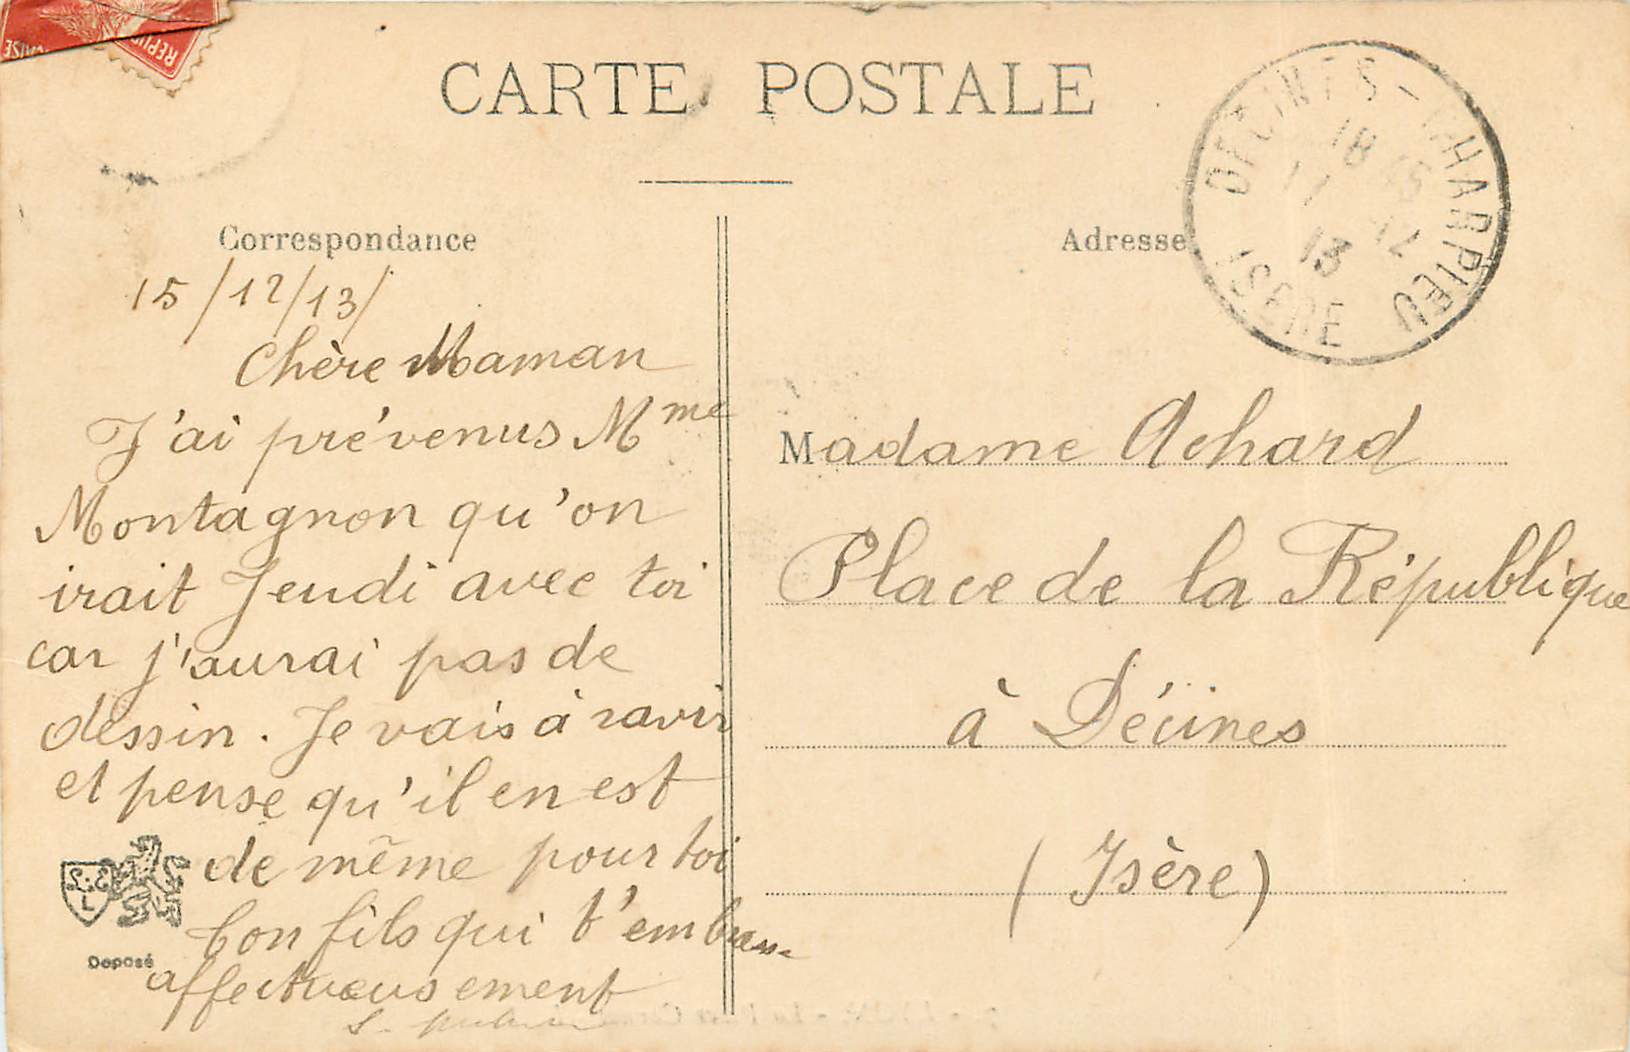 CARTE POSTALE
Correspondance
Adresse
DECINES-CHARPIEU
18 45
17 12
13
ISERE
15/12/13/
Chère Maman
J'ai prévenus Mme
Montagnon qu'on
irait Jeudi avec toi
car j'aurai pas de
dessin. Je vais à ravir
et pense qu'il en est
de même pour toi
Ton fils qui t'embrasse
affectueusement
Madame Achard
Place de la République
à Décines
(Isère)
S.E
L
Deposé
REPUB